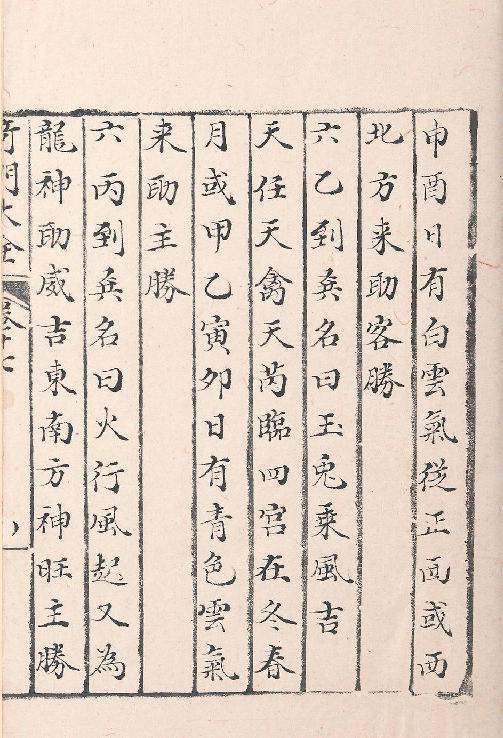 申酉日有白雲氣從正西或西
北方来助客勝
六乙到兵名曰玉兔乗風吉
天任天禽天芮臨四宫在冬春
月或甲乙寅卯日有青色雲氣
来助主勝
六丙到兵名曰火行風起又為
龍神助威吉東南方神旺主勝
奇門大全
卷十七